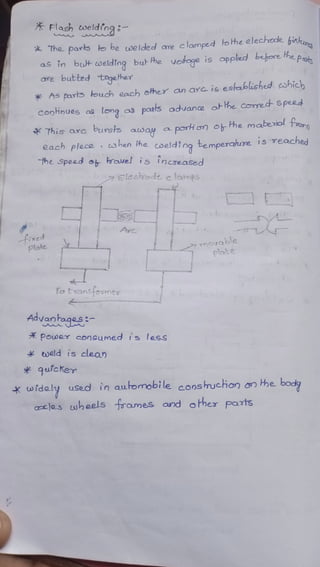 * Flash welding:-
* The parts to be welded are clamped to the electrode fixtures
as in butt welding but the voltage is applied before the parts
are butted together
* As parts touch each other an arc is established which
continues as long as parts advance at the correct speed
* This arc bursts away a portion of the material from
each piece. when the welding temperature is reached
the speed of travel is increased
Electrode clamps
Arc
fixed
plate
movable
plate
To transformer
Advantages:-
* power consumed is less
* weld is clean
* quicker
* widely used in automobile construction on the body
axles wheels frames and other parts